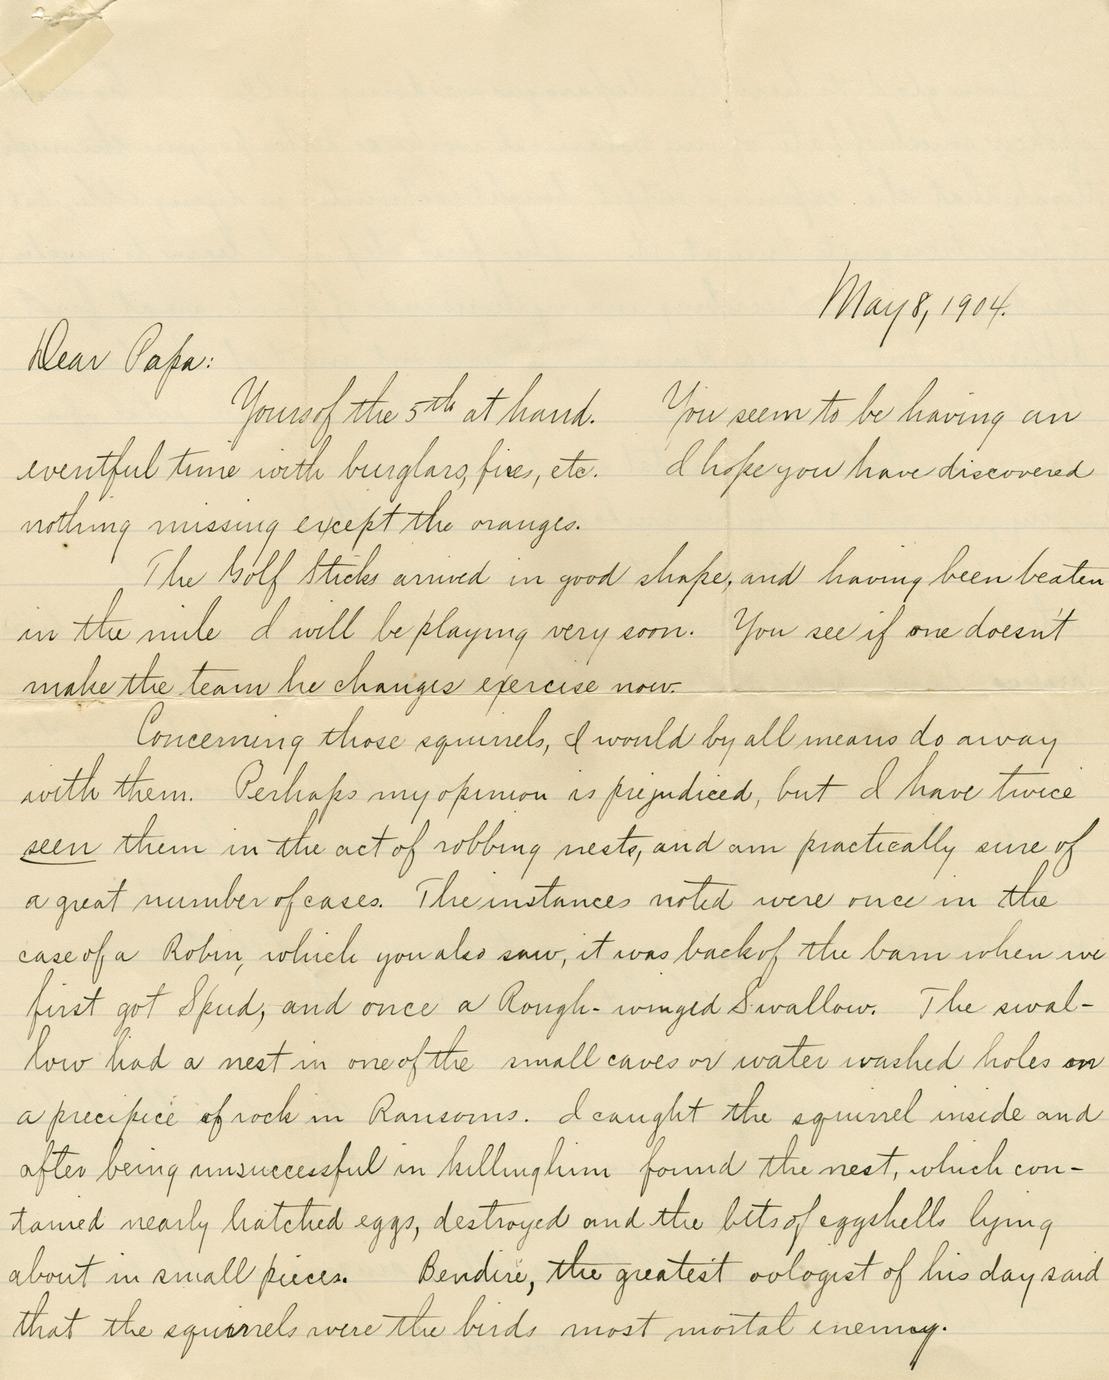 May 8, 1904.
Dear Papa:
Yours of the 5th at hand. You seem to be having an
eventful time with burglars, fires, etc. I hope you have discovered
nothing missing except the oranges.
The Golf Sticks arrived in good shape, and having been beaten
in the mile I will be playing very soon. You see if one doesn't
make the team he changes exercise now.
Concerning those squirrels, I would by all means do away
with them. Perhaps my opinion is prejudiced, but I have twice
seen them in the act of robbing nests, and am practically sure of
a great number of cases. The instances noted were once in the
case of a Robin, which you also saw, it was back of the barn when we
first got Spud, and once a Rough-winged Swallow. The swal-
low had a nest in one of the small caves or water washed holes on
a precipice of rock in Ransoms. I caught the squirrel inside and
after being unsuccessful in killing him found the nest, which con-
tained nearly hatched eggs, destroyed and the bits of eggshells lying
about in small pieces. Bendire, the greatest oologist of his day said
that the squirrels were the birds most mortal enemy.